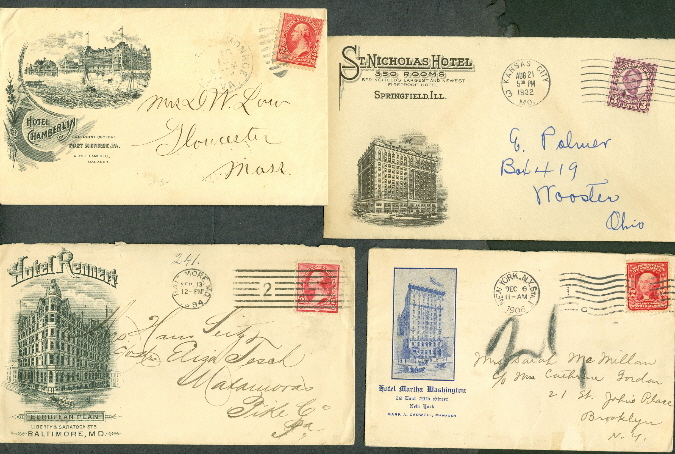 HOTEL
CHAMBERLIN
FORT MONROE, VA.
Mrs D. W. Low
Gloucester
Mass.
ST. NICHOLAS HOTEL
350 ROOMS
SPRINGFIELD'S LARGEST AND NEWEST
FIREPROOF HOTEL
SPRINGFIELD, ILL.
KANSAS CITY
AUG 21
5 PM
1932
MO.
E. Palmer
Box 419
Wooster
Ohio
Hotel Rennert
EUROPEAN PLAN
LIBERTY & SARATOGA STS.
BALTIMORE, MD.
241.
BALTIMORE, MD.
12-PM
2
Matamoras
Pike Co
Pa.
Hotel Martha Washington
29 East 29th Street
New York
NEW YORK, N.Y.
DEC 6
11-AM
1906
Mrs. Sarah McMillan
c/o Mrs Catherine Gordon
21 St. John's Place
Brooklyn
N.Y.